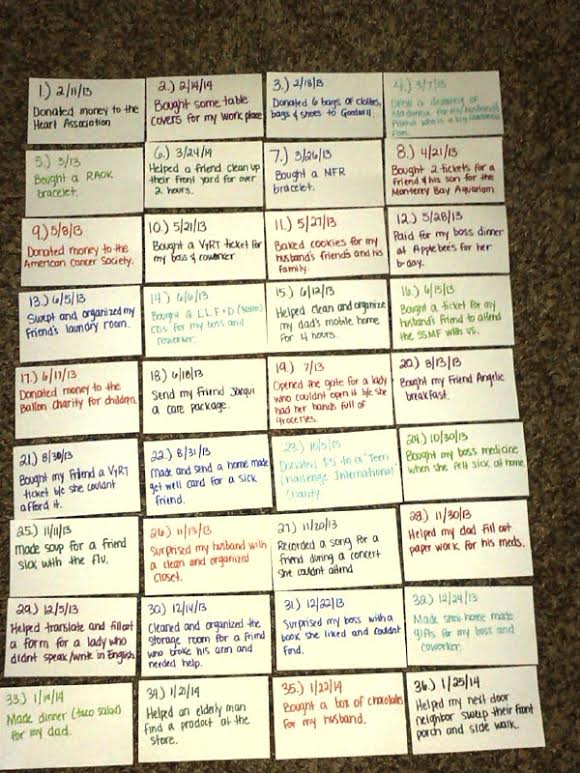 1.) 2/11/13
Donated money to the
Heart Association
2.) 2/14/14
Bought some table
covers for my work place
3.) 2/18/13
Donated 6 bags of clothes,
bags & shoes to Goodwill.
4.) 3/7/13
Drew a drawing of
Madonna for my husband's
friend who is a big Madonna
fan.
5.) 3/13
Bought a RAOK
bracelet.
6.) 3/24/14
Helped a friend clean up
their front yard for over
2 hours.
7.) 3/26/13
Bought a NFR
bracelet.
8.) 4/21/13
Bought 2 tickets for a
friend & his son for the
Monterey Bay Aquarium
9.) 5/8/13
Donated money to the
American Cancer Society.
10.) 5/21/13
Bought a VyRT ticket for
my boss & coworker
11.) 5/27/13
Baked cookies for my
husband's friends and his
family.
12.) 5/28/13
Paid for my boss dinner
at Applebees for her
b-day.
13.) 6/5/13
Swept and organized my
friend's laundry room.
14.) 6/6/13
Bought 2 L.L.F+D
CDs for my boss and
coworker.
15.) 6/12/13
Helped clean and organize
my dad's mobile home
for 4 hours.
16.) 6/15/13
Bought a ticket for my
husband's friend to attend
the SSMF with us.
17.) 6/17/13
Donated money to the
Ballon charity for children.
18.) 6/18/13
Send my friend Jacqui
a care package.
19.) 7/13
Opened the gate for a lady
who couldnt open it b/c she
had her hands full of
groceries.
20.) 8/13/13
Bought my friend Angelic
breakfast.
21.) 8/30/13
Bought my friend a VyRT
ticket b/c she couldnt
afford it.
22.) 8/31/13
Made and send a home made
get well card for a sick
friend.
23.) 10/5/13
Donated $5 to a "Teen
Challenge International"
Charity
24.) 10/30/13
Bought my boss medicine
when she fell sick at home.
25.) 11/11/13
Made soup for a friend
sick with the flu.
26.) 11/13/13
Surprised my husband with
a clean and organized
closet.
27.) 11/20/13
Recorded a song for a
friend during a concert
she couldnt attend
28.) 11/30/13
Helped my dad fill out
paper work for his meds.
29.) 12/5/13
Helped translate and fill out
a form for a lady who
didnt speak/write in English.
30.) 12/14/13
Cleaned and organized the
storage room for a friend
who broke his arm and
needed help.
31.) 12/22/13
Surprised my boss with a
book she liked and couldnt
find.
32.) 12/24/13
Made semi home made
gifts for my boss and
coworker.
33.) 1/14/14
Made dinner (taco salad)
for my dad.
34.) 1/21/14
Helped an elderly man
find a product at the
store.
35.) 1/22/14
Bought a box of chocolates
for my husband.
36.) 1/25/14
Helped my next door
neighbor sweep their front
porch and side walk.